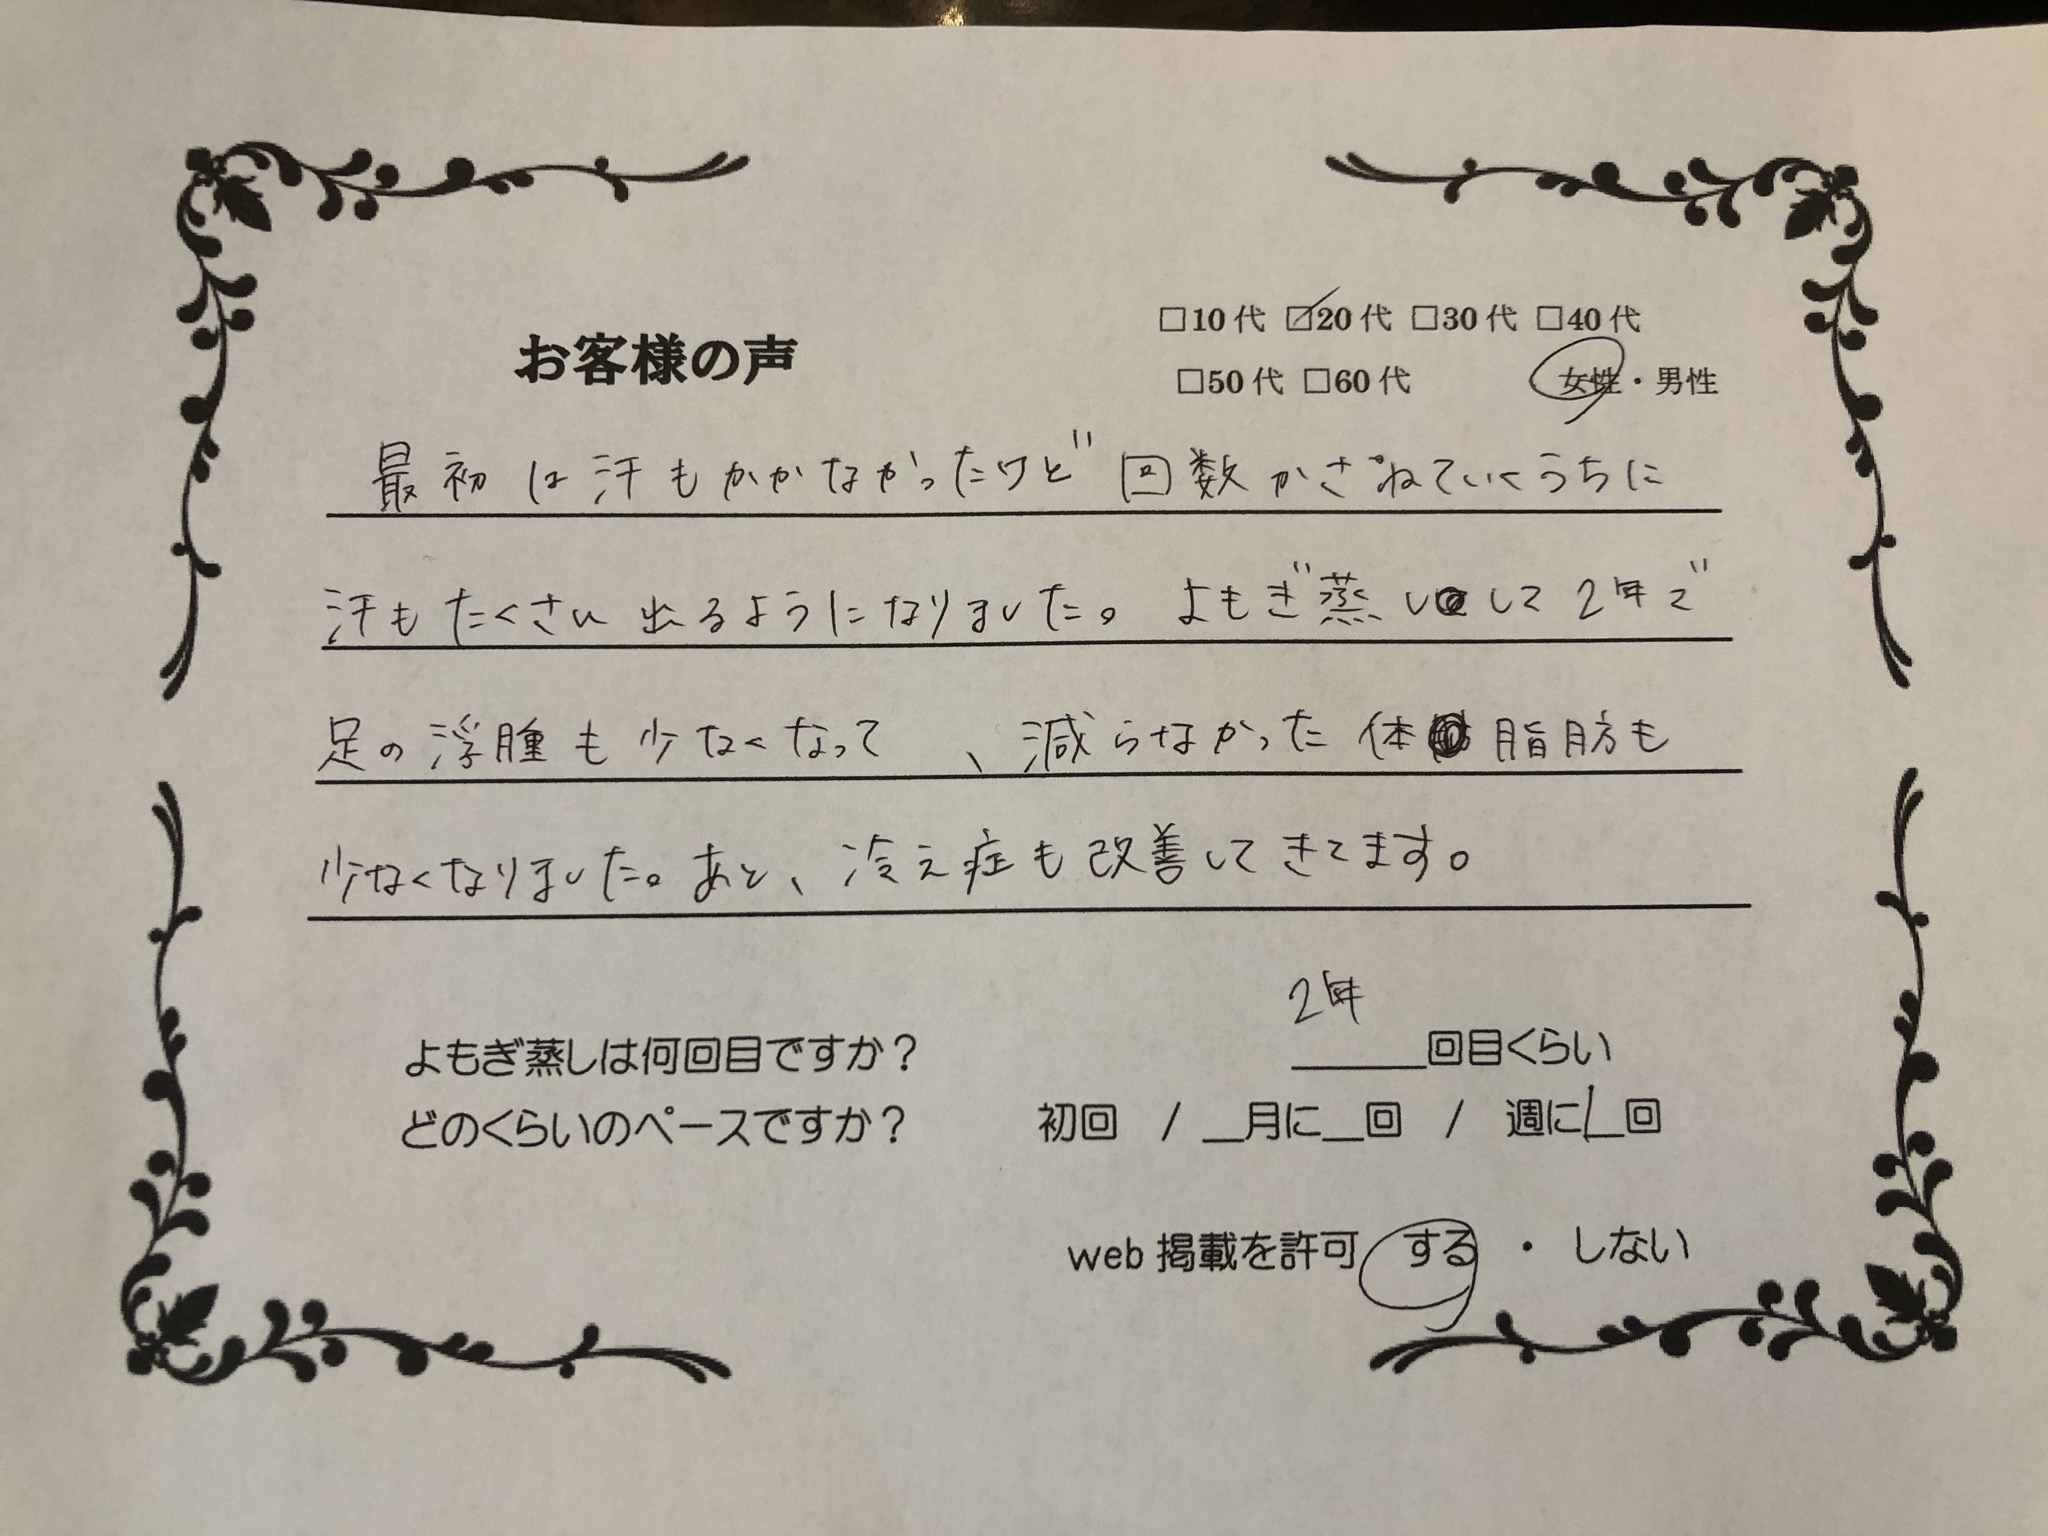 お客様の声
□10代 ☑20代 □30代 □40代
□50代 □60代 女性・男性
最初は汗もかかなかったけど回数かさねていくうちに
汗もたくさん出るようになりました。よもぎ蒸しして2年で
足の浮腫も少なくなって、減らなかった体脂肪も
少なくなりました。あと、冷え症も改善してきてます。
2年
よもぎ蒸しは何回目ですか？ ＿＿＿回目くらい
どのくらいのペースですか？ 初回 / ＿月に＿回 / 週に1回
web掲載を許可 する ・ しない